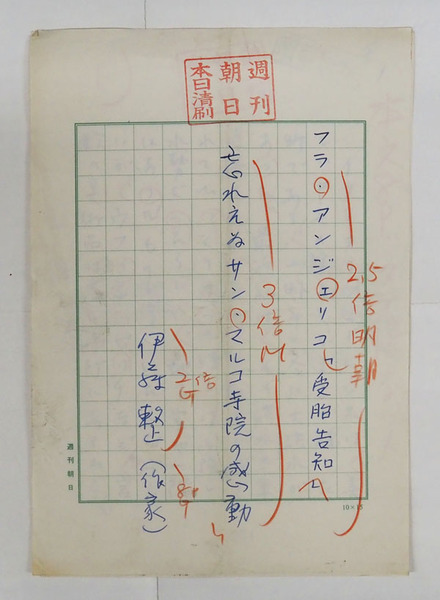 週刊
朝日
本日清刷
フラ・アンジェリコ「受胎告知」
2,5倍明朝
忘れえぬサン・マルコ寺院の感動
3倍M
伊藤整(作家)
2倍G
週刊朝日